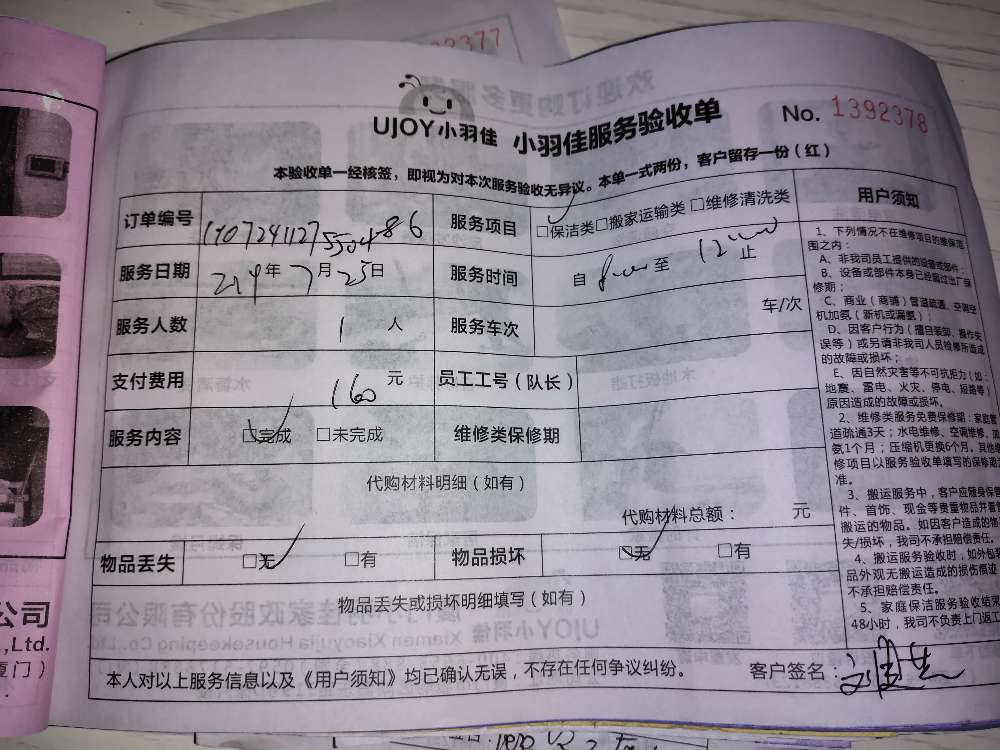 UJOY小羽佳 小羽佳服务验收单 No. 1392378
本验收单一经核签，即视为对本次服务验收无异议。本单一式两份，客户留存一份（红）
订单编号 服务项目 □保洁类□搬家运输类□维修清洗类
服务日期 年 7 月 25 日 服务时间 自 至 12 止
服务人数 1 人 服务车次 车/次
支付费用 160 元 员工工号（队长）
服务内容 □完成 □未完成 维修类保修期
代购材料明细（如有）
代购材料总额： 元
物品丢失 □无 □有 物品损坏 □无 □有
物品丢失或损坏明细填写（如有）
本人对以上服务信息以及《用户须知》均已确认无误，不存在任何争议纠纷。 客户签名：
用户须知
1、下列情况不在维修项目的维保范
围之内：
A、非我司员工提供的设备或部件；
B、设备或部件本身已经超过出厂保
修期；
C、商业（商铺）管道疏通、空调空
机加氨（新机或漏氨）；
D、因客户行为（擅自装卸、操作失
误等）或另请非我司人员检修所造成
的故障或损坏；
E、因自然灾害等不可抗拒力（如：
地震、雷电、火灾、停电、短路等）
原因造成的故障或损坏。
2、维修类服务免费保修期：家庭管
道疏通3天；水电维修、空调维修、加
氨1个月；压缩机更换6个月。其他维
修项目以服务验收单填写的保修期为
准。
3、搬运服务中，客户应随身保管
件、首饰、现金等贵重物品并看管
搬运的物品。如因客户造成的物
失/损坏，我司不承担赔偿责任。
4、搬运服务验收时，如外包装
品外观无搬运造成的损伤痕迹
不承担赔偿责任。
5、家庭保洁服务验收结束
48小时，我司不负责上门返工
公司
.,Ltd.
厦门）